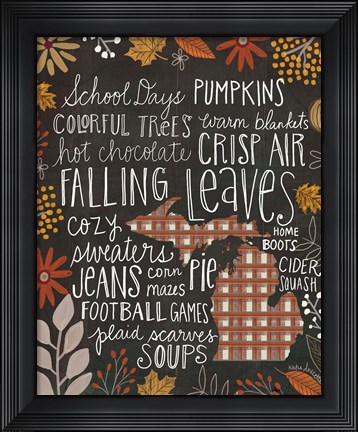 School Days PUMPKINS
COLORFUL TREES warm blankets
hot chocolate CRISP AIR
FALLING Leaves
cozy sweaters
HOME
BOOTS
JEANS corn mazes PIE
CIDER
SQUASH
FOOTBALL GAMES
plaid scarves
SOUPS